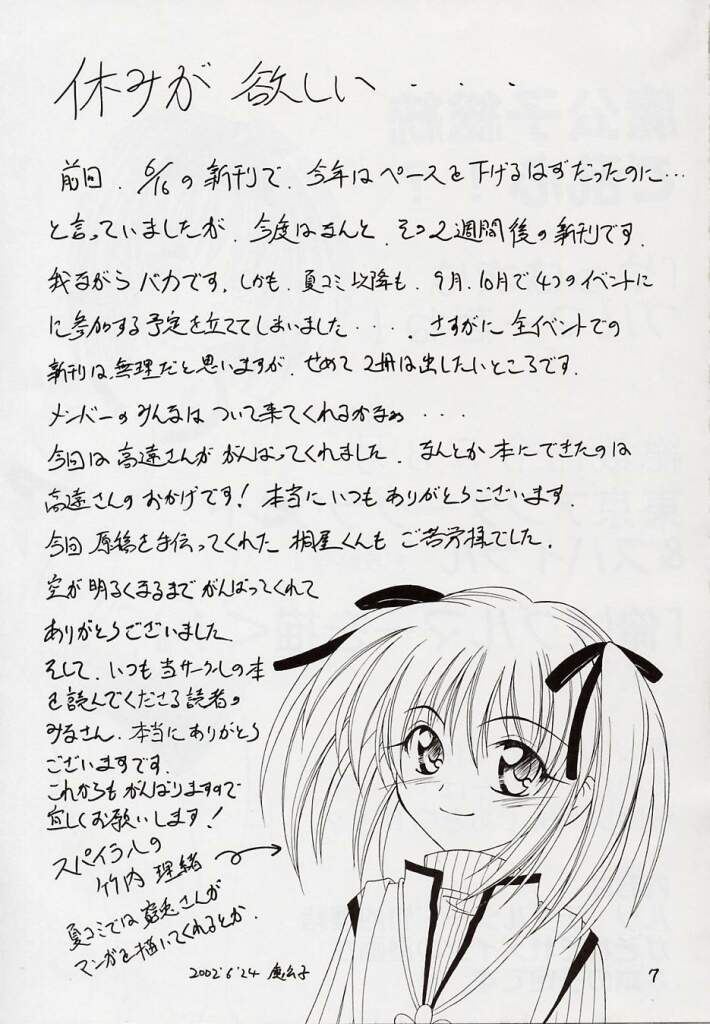 休みが 欲しい・・・・
前回、6/16の新刊で、今年はペースを下げるはずだったのに…
と言っていましたが、今度はなんと、その2週間後の新刊です。
我ながらバカです。しかも、夏コミ以降も、9月、10月で4つのイベントに
に参加する予定を立ててしまいました・・・。さすがに全イベントでの
新刊は無理だと思いますが、せめて2冊は出したいところです。
メンバーのみんなはついて来てくれるかなぁ・・・
今回は高遠さんががんばってくれました。なんとか本にできたのは
高遠さんのおかげです!本当にいつもありがとうございます。
今回原稿を手伝ってくれた桐屋くんもご苦労様でした。
空が明るくなるまでがんばってくれて
ありがとうございました。
そして、いつも当サークルの本
を読んでくださる読者の
みなさん、本当にありがとう
ございますです。
これからもがんばりますので
宜しくお願いします!
スパイラルの
竹内 理緒
夏コミでは さんが
マンガを描いてくれるとか。
2002.6.24 鷹公子
7